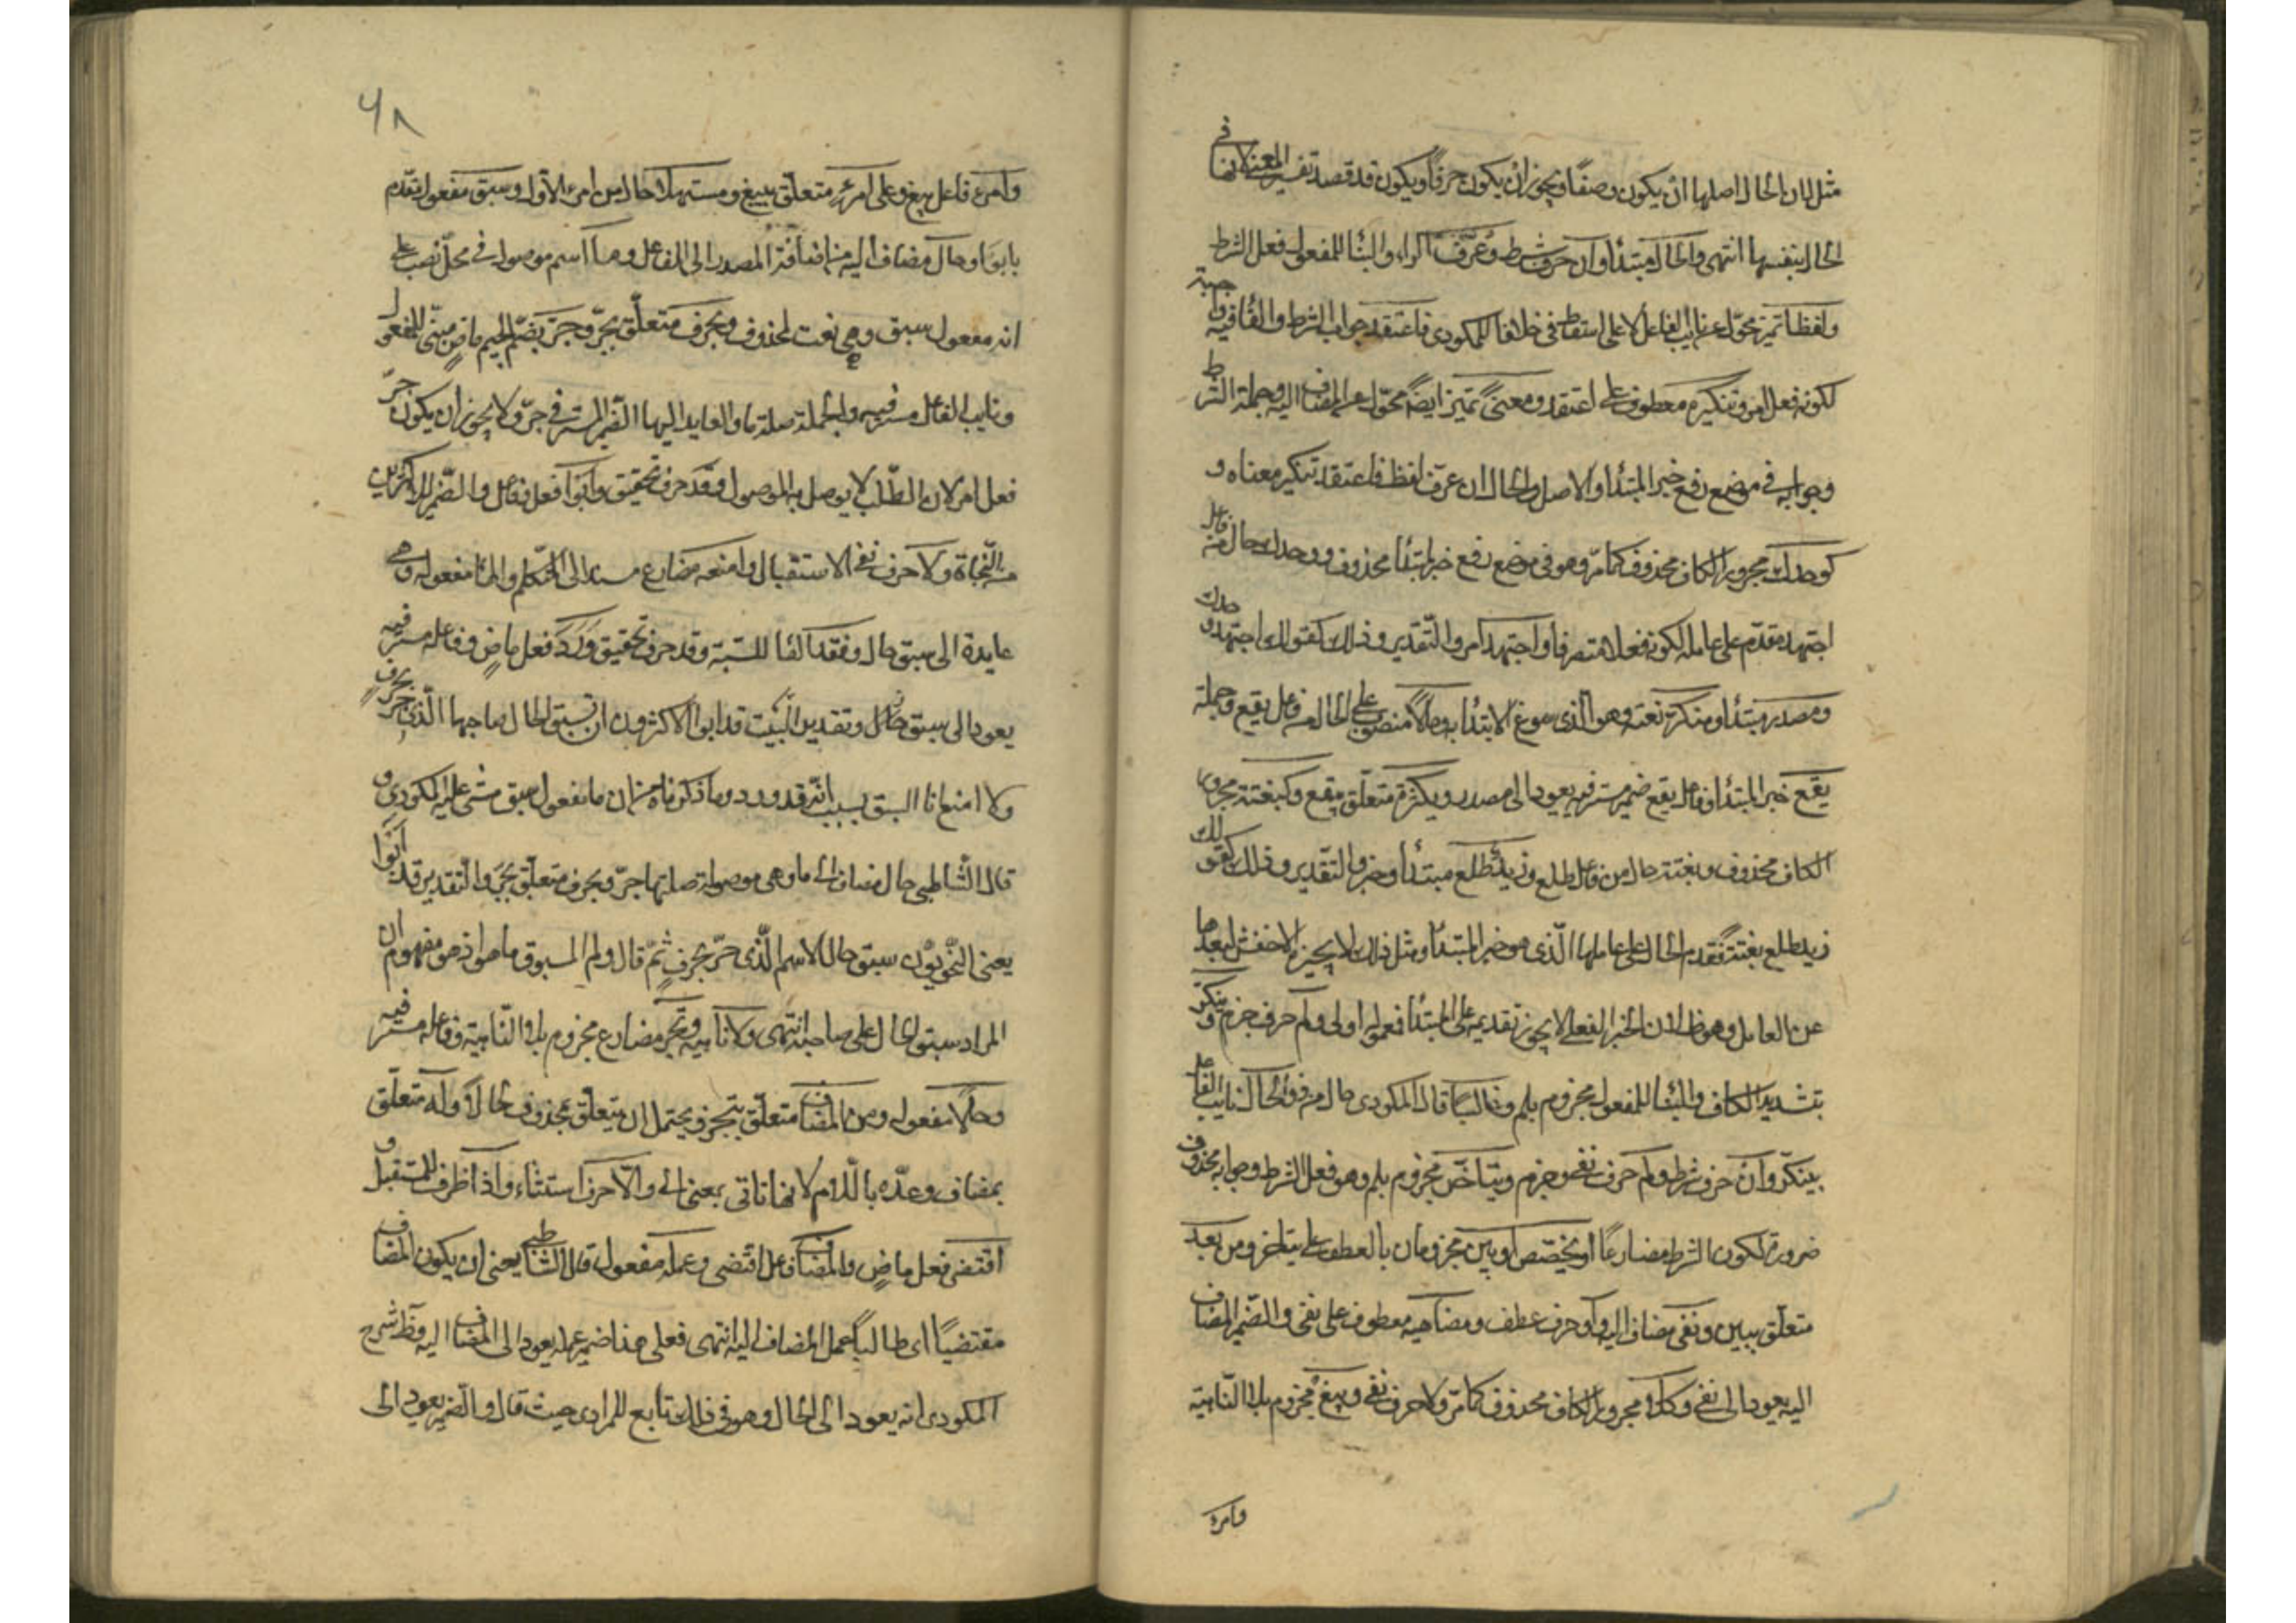 مثل لان الحال اصلها ان يكون وصفا ويجوز ان يكون حرفا ويكون قد قصد تفسير المعنى لانها في
الحال بنفسها انتهى والحال مبتدأ وان حرف شرط وعرّف الراء والبناء للمفعول فعل الشرط
ولفظا تميز محوّل عن نايب الفاعل لا على اسقاط في خلافا للمكودي فاعتقد جواب الشرط والفا فيه واجبة
لكونه فعل امر وتنكيره معطوف على اعتقد ومعنىً تميز ايضاً محوّل عن المضاف اليه وجملة الشرط
وجوابه في موضع رفع خبر المبتدأ والاصل والحال ان عرّف لفظه فاعتقد تنكير معناه و
كوحدك مجرور الكاف محذوف كما مرّ وهو في موضع رفع خبر لمبتدأ محذوف ووحدك حال من فاعل
اجتهد مقدّم على عامله لكونه فعلا متصرفا واجتهد امر والتّقدير وذلك كقولك اجتهد وحدك
ومصدر مبتدأ ومنكر نعته وهو الذي سوغ الابتدأ به وحالاً منصوب على الحال من فاعل يقع وجملة
يقع خبر المبتدأ وفاعل يقع ضمير مستتر فيه يعود الى مصدر وبكثرة متعلّق بيقع وكبغتة مجرور
الكاف محذوف وبغتة حال من فاعل طلع وزيد طلع مبتدأ وخبر والتّقدير وذلك كقولك
زيد طلع بغتة فقدم الحال على عاملها الّذي هو خبر المبتدأ ومثل ذلك لا يجيزه الاخفش لبعدها
عن العامل وهو ظ لان الخبر الفعلي لا يجوز تقديمه على المبتدأ فمعموله اولى ولم حرف جزم وينكّر
بتشديد الكاف والبنا للمفعول مجزوم بلم وغالبًا قال المكودي حال من ذو والحال نايب الفاعل
بينكّر وان حرف شرط ولم حرف نفي وجزم ويتأخّر مجزوم بلم وهو فعل الشرط وجوابه محذوف
ضرورة لكون الشرط مضارعًا او يخصّص او يبن مجزومان بالعطف على يتاخر ومن بعد
متعلّق بيبن ونفي مضاف اليه واو حرف عطف ومضاهيه معطوف على نفي والضّمير المضاف
اليه يعود الى نفي وكلا مجرور الكاف محذوف كما مرّ ولا حرف نفي ويبغ مجزوم بلا النّاهية
وامرء
٦٨
وامرء فاعل يبغ وعلى امرء متعلّق بيبغ ومستسهلا حال من امرء الاوّل وسبق مفعول مقدّم
بابوا وحال مضاف اليه من اضافة المصدر الى الفاعل وما اسم موصول في محلّ نصب على
انه مفعول سبق وهي نعت لمحذوف وبحرف متعلّق بجرّ وجرّ بضمّ الجيم ماضٍ مبنّي للمفعول
ونايب الفاعل مستتر فيه والجملة صلة ما والعايد اليها الضّمير المستتر في جرّ ولا يجوز ان يكون جرّ
فعل امر لان الطّلب لا يوصل به الموصول وقد حرف تحقيق وابوا فعل وفاعل والضّمير للاكثرين
من النّحاة ولا حرف نفي الاستقبال وامنعه مضارع مسند الى المتكلم والها مفعوله وهي
عايدة الى سبق حال وفقد الفا للسّببية وقد حرف تحقيق وورد فعل ماضٍ وفاعله مستتر فيه
يعود الى سبق حال وتقدير البيت قد ابوا الاكثرون ان تسبق الحال صاحبها الّذي جرّ بحرفٍ
ولا امنع انا السبق بسبب انّه قد ورد وما ذكرناه من ان ما مفعول سبق مشى عليه المكودي و
قال الشّاطبي حال مضاف الى ما وهي موصولة صلتها جرّ وبحرف متعلّق بجرّ والتّقدير قد ابوا
يعني النّحويّون سبق حال الاسم الّذي جرّ بحرفٍ ثمّ قال ولم المسبوق ما هو اذ هو مفهوم ان
المراد سبق الحال على صاحبه انتهى ولا ناهيه وتجز مضارع مجزوم بلا النّاهية وفاعله مستتر فيه
وحالًا مفعوله ومن المضاف متعلّق بتجز ويحتمل ان يتعلّق بمحذوف حالاً وله متعلّق
بمضاف وعدّه بالّلام لانها تاتي بمعنى الى والّا حرف استثناء واذا ظرف للمستقبل و
اقتضى فعل ماضٍ والمضاف فاعل اقتضى وعمله مفعول قال الشاطبي يعني ان يكون المضاف
مقتضيًا اى طالبًا عمل المضاف اليه انتهى فعلى هذا ضمير عمله يعود الى المضاف اليه وظ شرح
المكودي انه يعود الى الحال وهو في ذلك تابع للمرادي حيث قال والضّمير يعود الى